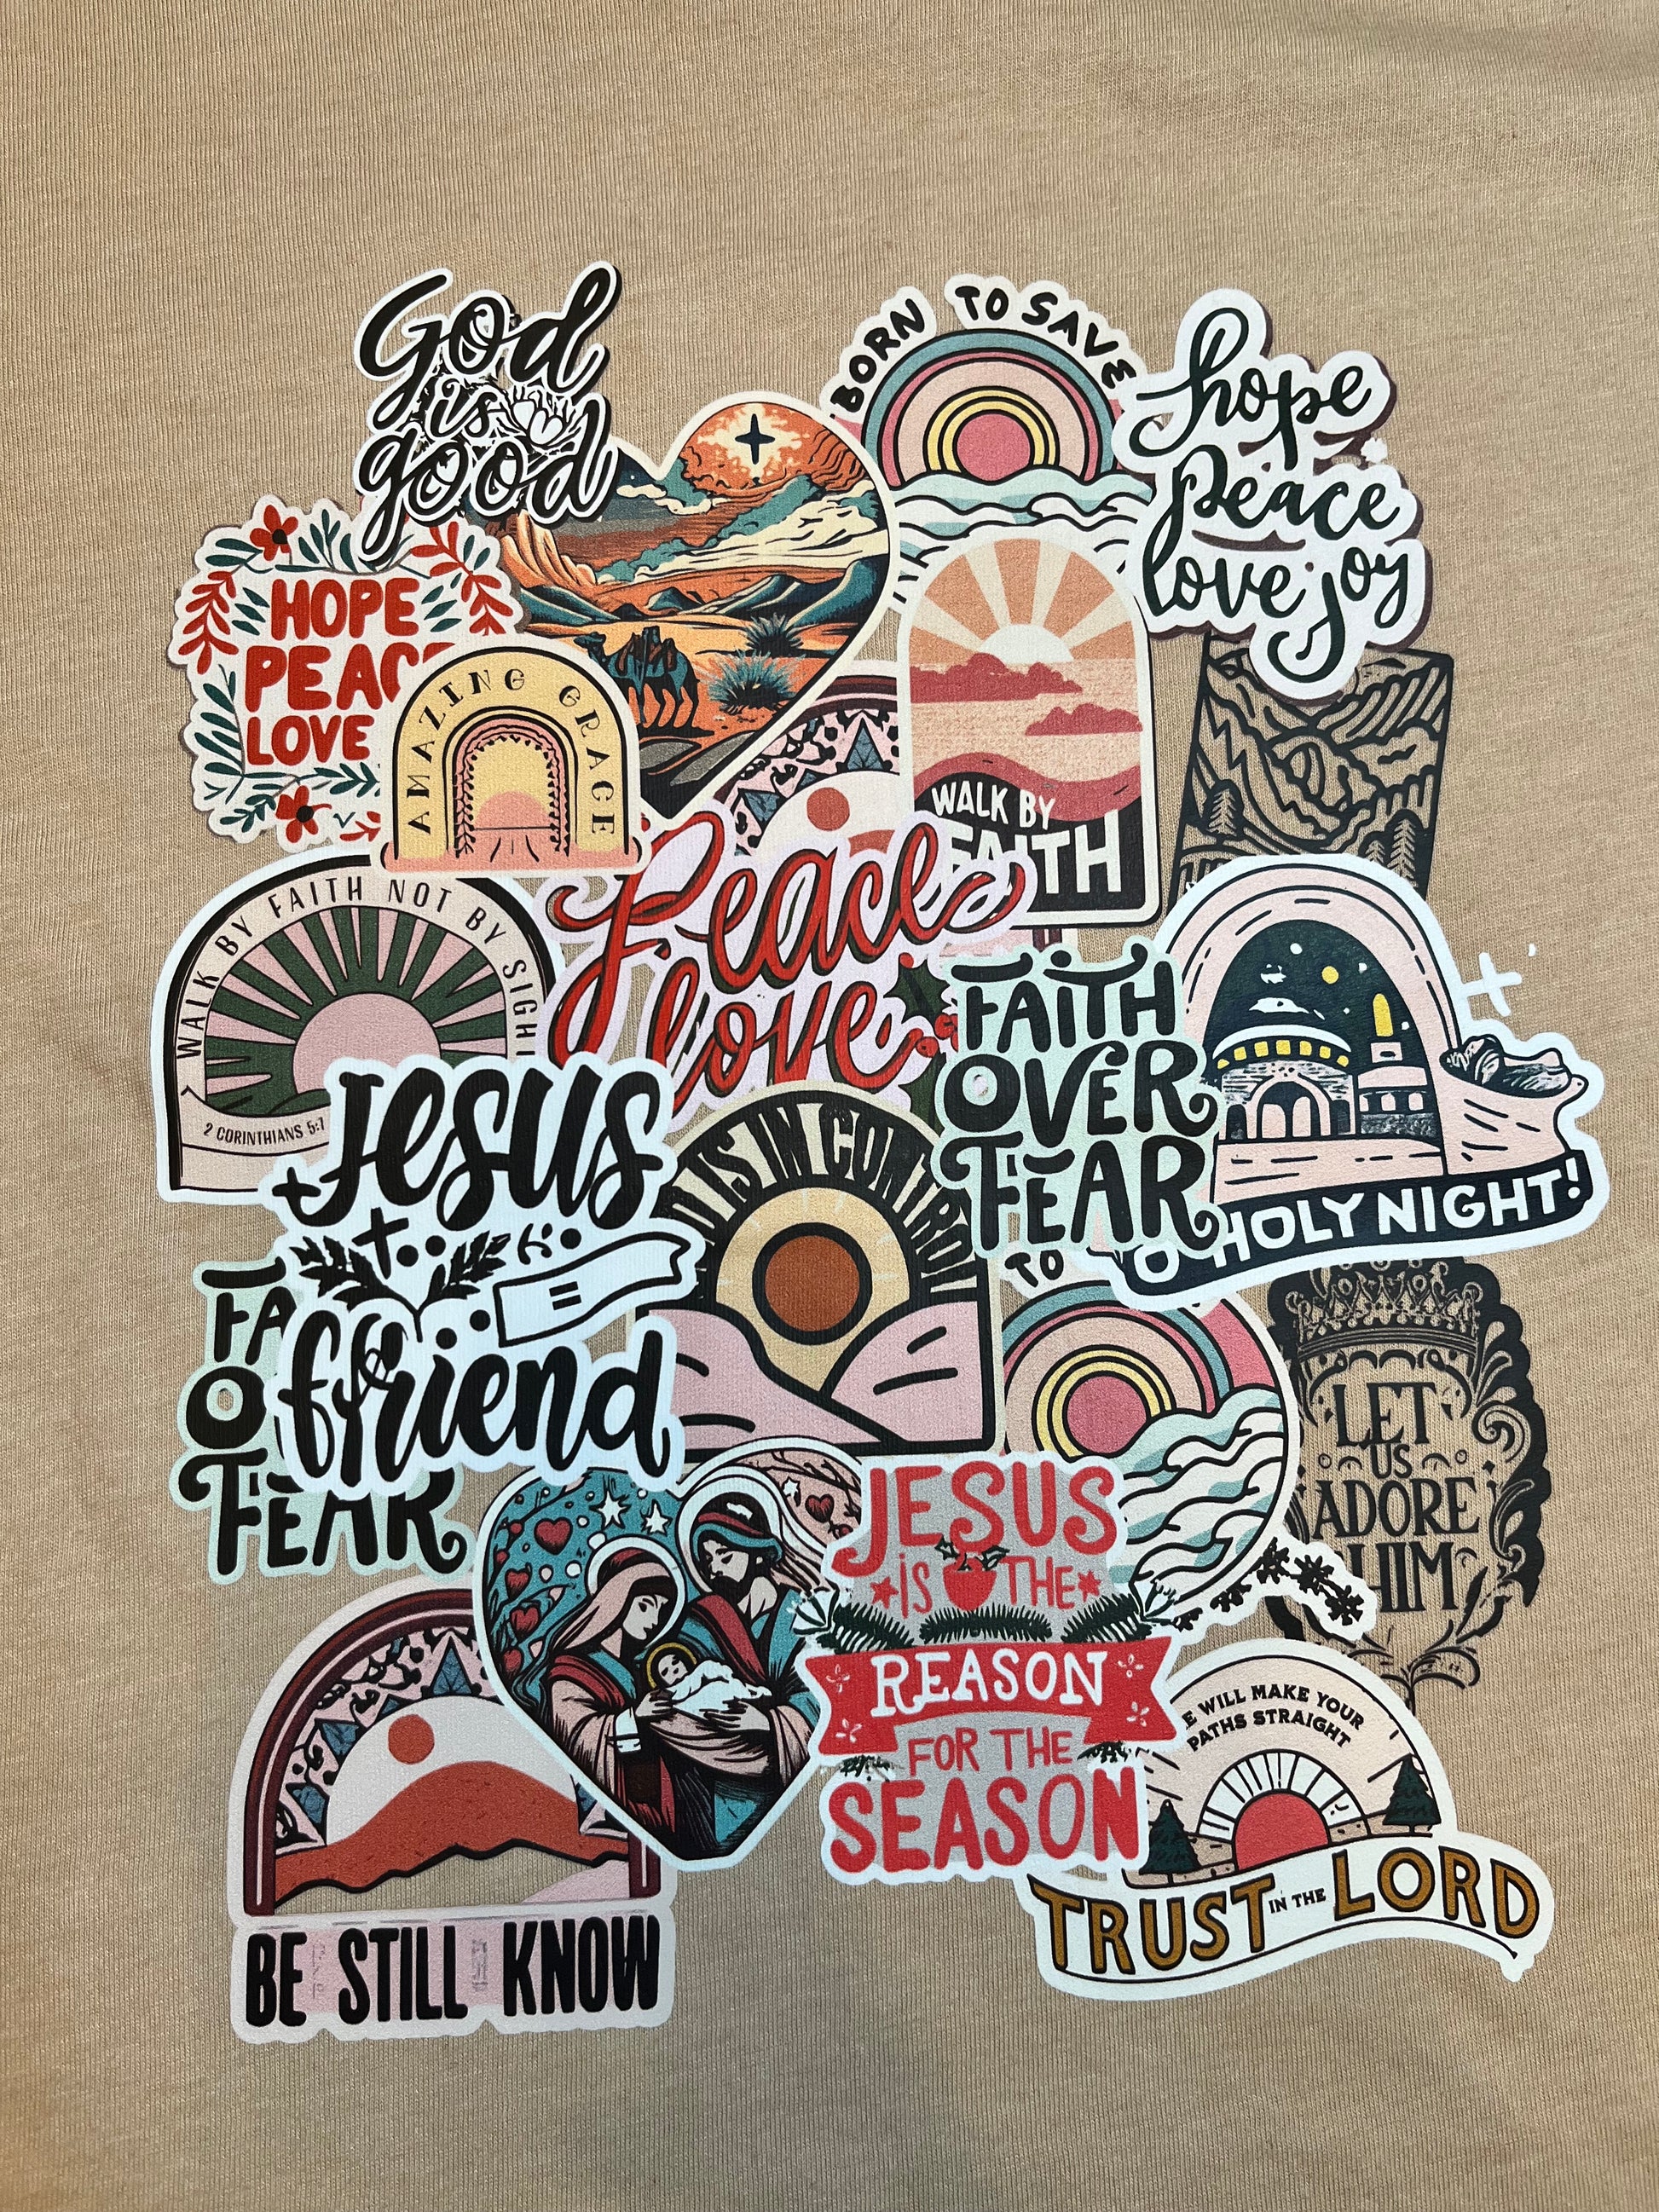 God
is
good
BORN TO SAVE
hope
peace
love joy
HOPE
PEAC
LOVE
AMAZING GRACE
WALK BY
FAITH
Peace
love
WALK BY FAITH NOT BY SIGHT
2 CORINTHIANS 5:7
FAITH
OVER
FEAR
O HOLY NIGHT!
Jesus
friend
IS IN CONTROL
TO
FA
O
FEAR
LET
US
ADORE
HIM
JESUS
IS THE
REASON
FOR THE
SEASON
E WILL MAKE YOUR
PATHS STRAIGHT
TRUST IN THE LORD
BE STILL KNOW